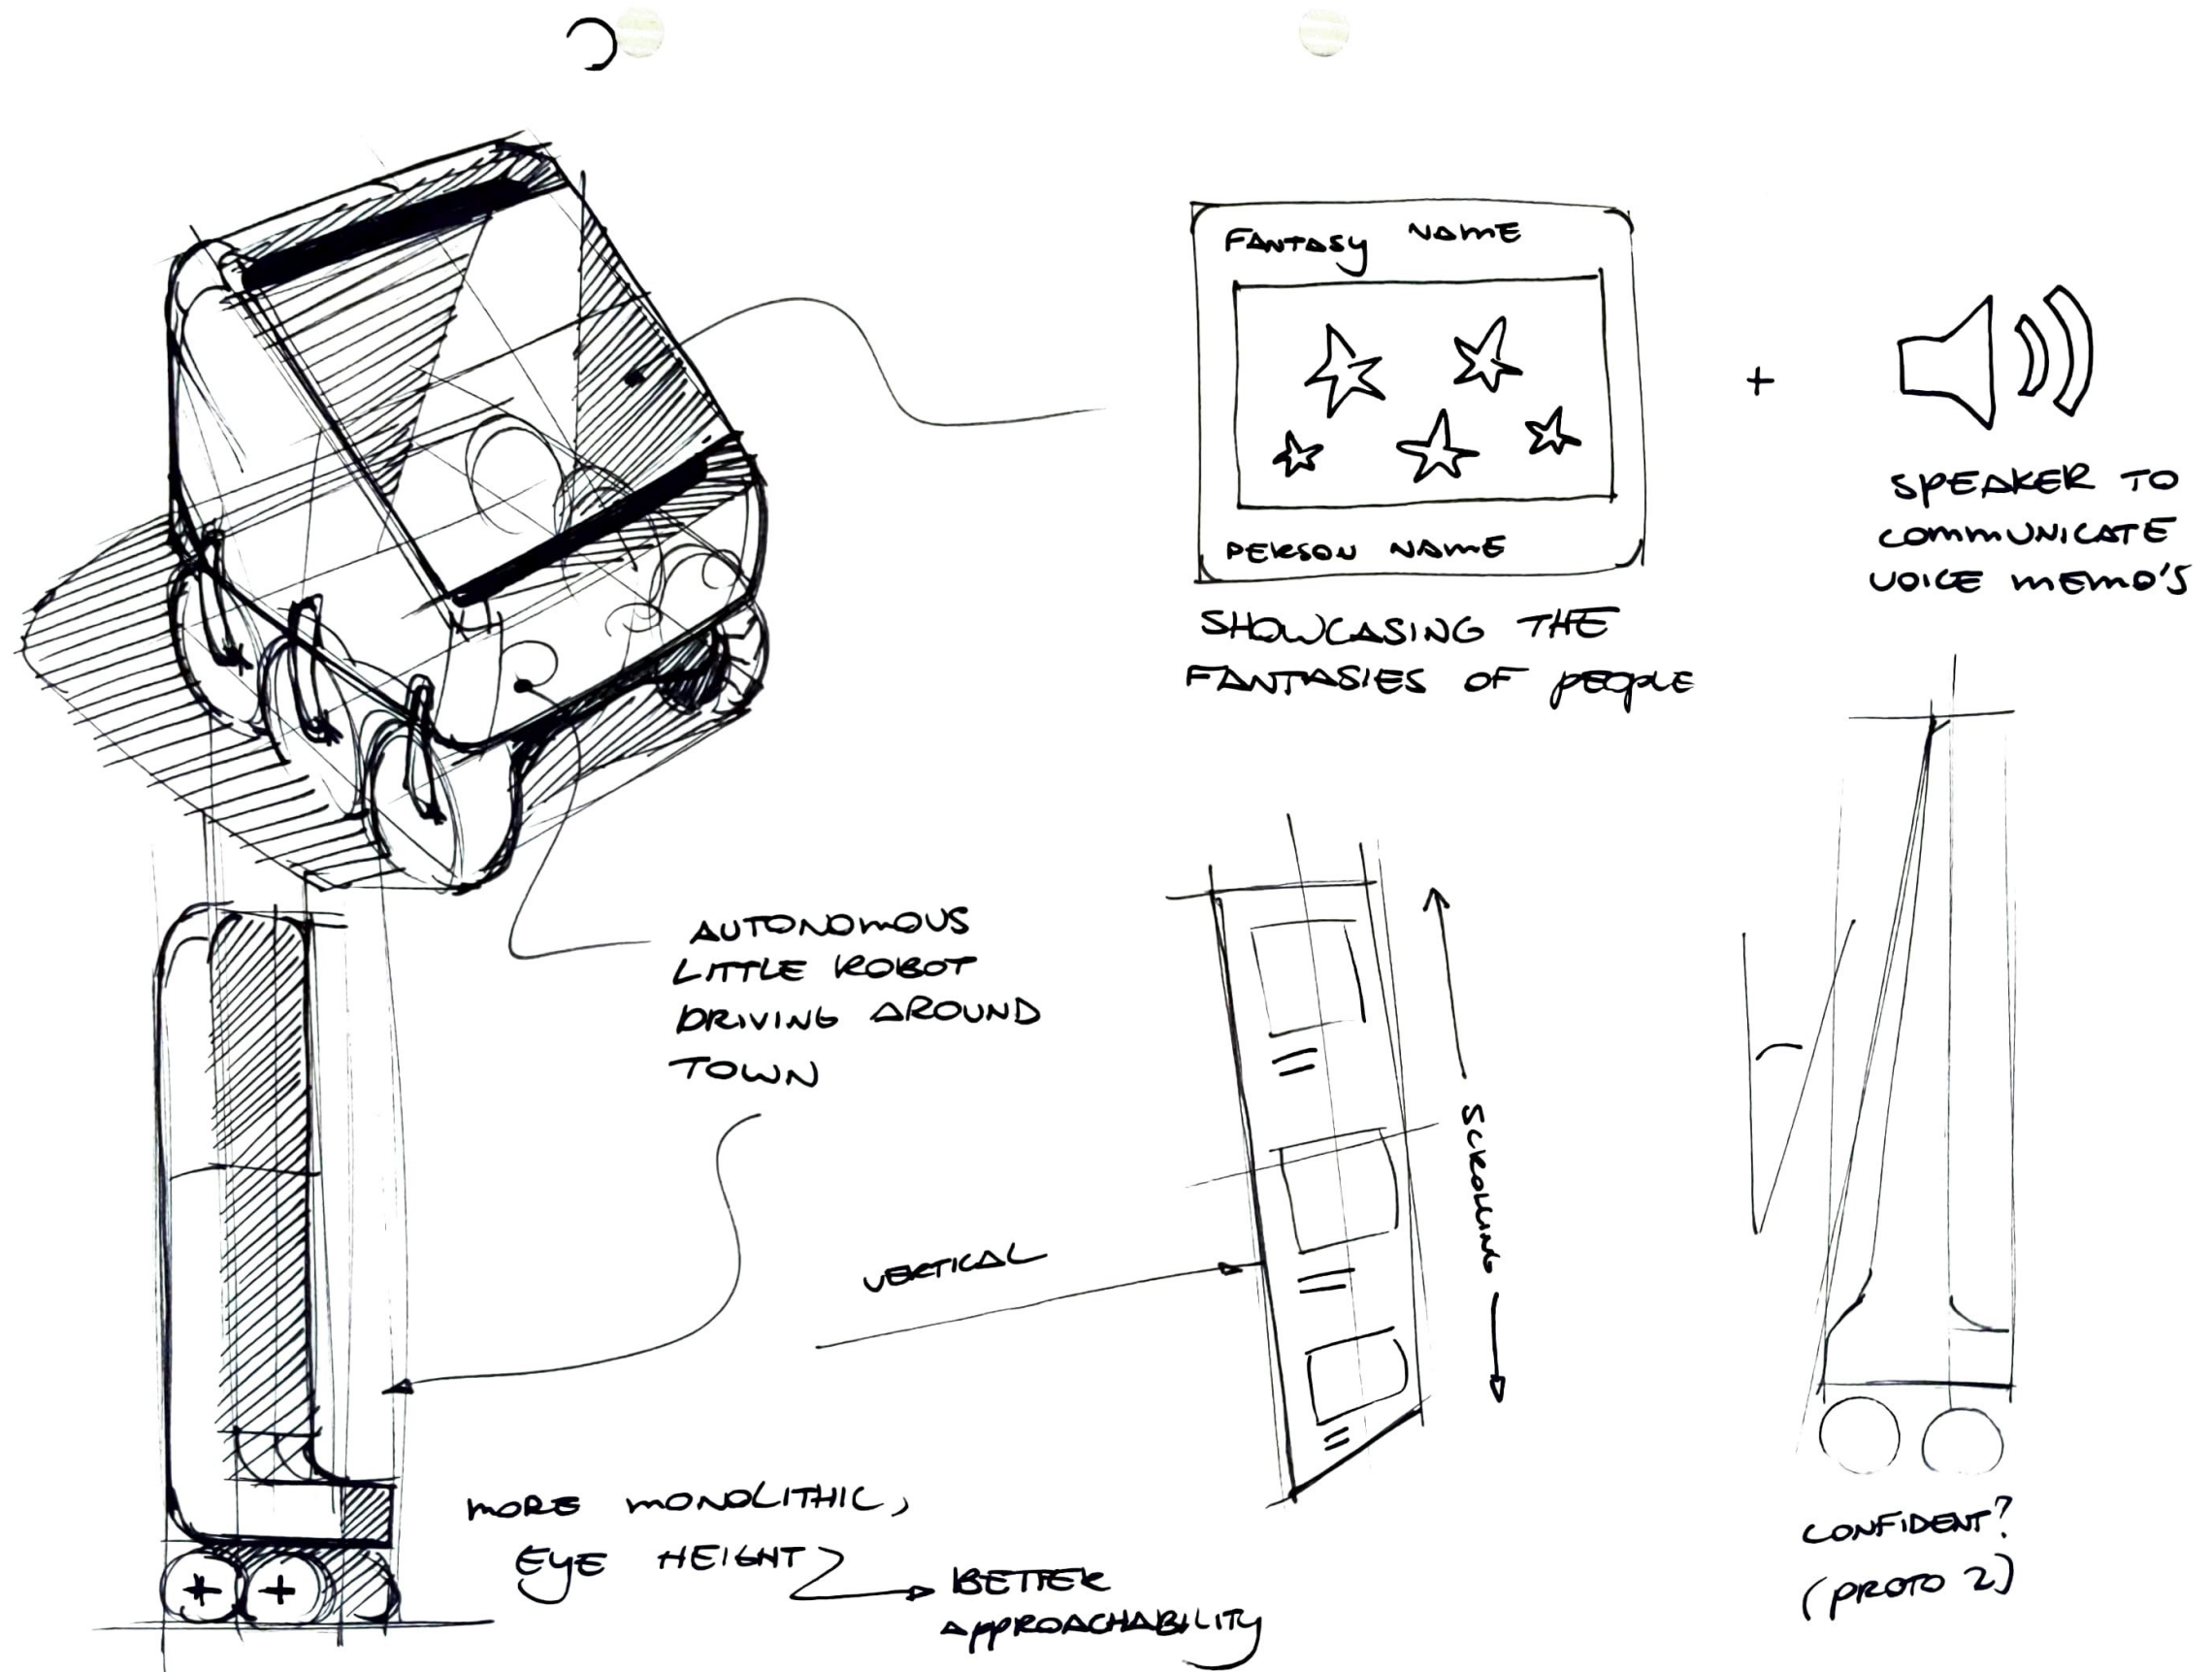 FANTASY NAME
PERSON NAME
SHOWCASING THE
FANTASIES OF PEOPLE
+
SPEAKER TO
COMMUNICATE
VOICE MEMO'S
AUTONOMOUS
LITTLE ROBOT
DRIVING AROUND
TOWN
VERTICAL
SCROLLING
MORE MONOLITHIC,
EYE HEIGHT
BETTER
APPROACHABILITY
CONFIDENT?
(PROTO 2)